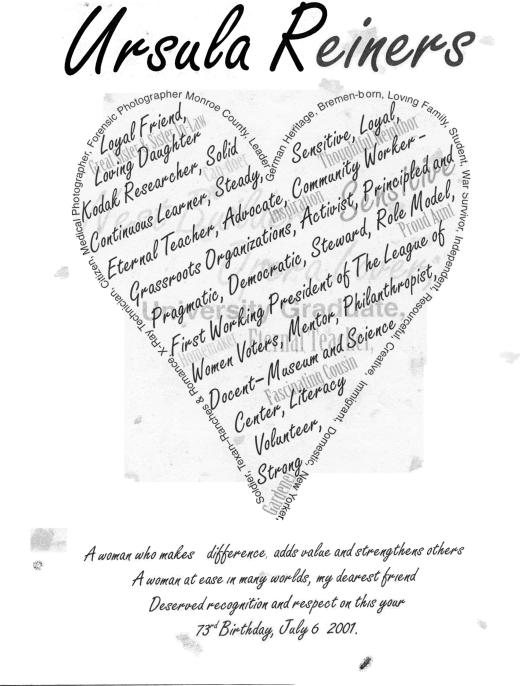 Ursula Reiners
Medical Photographer, Forensic Photographer Monroe County, Leader,
German Heritage, Bremen-born, Loving Family, Student, War Survivor, Independent, Resourceful, Creative Immigrant, Domestic, New Yorker,
Soldier, Texan-Ranches & Romance X-Ray Technician Citizen,
Loyal Friend,
Loving Daughter
Kodak Researcher, Solid
Continuous Learner, Steady,
Sensitive, Loyal,
Eternal Teacher, Advocate, Community Worker-
Grassroots Organizations, Activist, Principled and
Pragmatic, Democratic, Steward, Role Model,
First Working President of The League of
Women Voters, Mentor, Philanthropist,
Docent-Museum and Science
Center, Literacy
Volunteer,
Strong
Thoughtful Neighbor
Sensitive
Inspiration
Proud Aunt
University Graduate,
Eternal Teacher,
Fascinating Cousin
Gardener
A woman who makes difference, adds value and strengthens others
A woman at ease in many worlds, my dearest friend
Deserved recognition and respect on this your
73rd Birthday, July 6 2001.